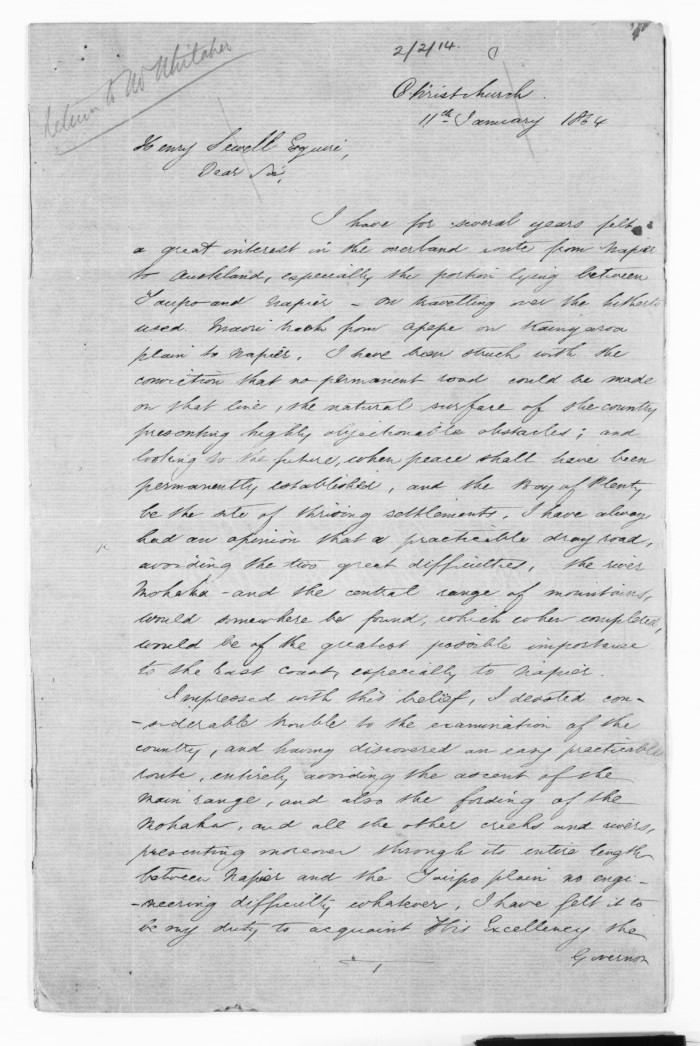 Return to Mr Whitaker
2/2/14.
Christchurch.
11th January 1864
Henry Sewell Esquire,
Dear Sir,
I have for several years felt
a great interest in the overland route from Napier
to Auckland, especially the portion lying between
Taupo and Napier - On travelling over the hitherto
used Maori track from Opepe on Kaingaroa
plain to Napier, I have been struck with the
conviction that no permanent road could be made
on that line, the natural surface of the country
presenting highly objectionable obstacles; and
looking to the future, when peace shall have been
permanently established, and the Bay of Plenty
be the site of thriving settlements, I have always
had an opinion that a practicable dray road,
avoiding the two great difficulties, the river
Mohaka - and the central range of mountains,
would somewhere be found, which when completed,
would be of the greatest possible importance
to the East Coast, especially to Napier.
Impressed with this belief, I devoted con-
-siderable trouble to the examination of the
country, and having discovered an easy practicable
route, entirely avoiding the ascent of the
main range, and also the fording of the
Mohaka, and all the other creeks and rivers,
presenting moreover through its entire length
between Napier and the Taupo plain no engi-
-neering difficulty whatever, I have felt it to
be my duty to acquaint His Excellency the
Governor
1